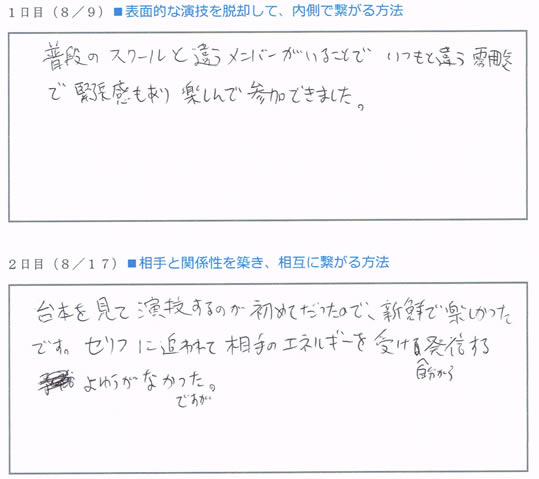 1日目(8/9)■表面的な演技を脱却して、内側で繋がる方法
普段のスクールと違うメンバーがいることで いつもと違う雰囲気
で緊張感もあり楽しんで参加できました。
2日目(8/17)■相手と関係性を築き、相互に繋がる方法
台本を見て演技するのが初めてだったので、新鮮で楽しかった
です。セリフに追われて相手のエネルギーを受け自分から発信する
よゆうがなかった。
ですが